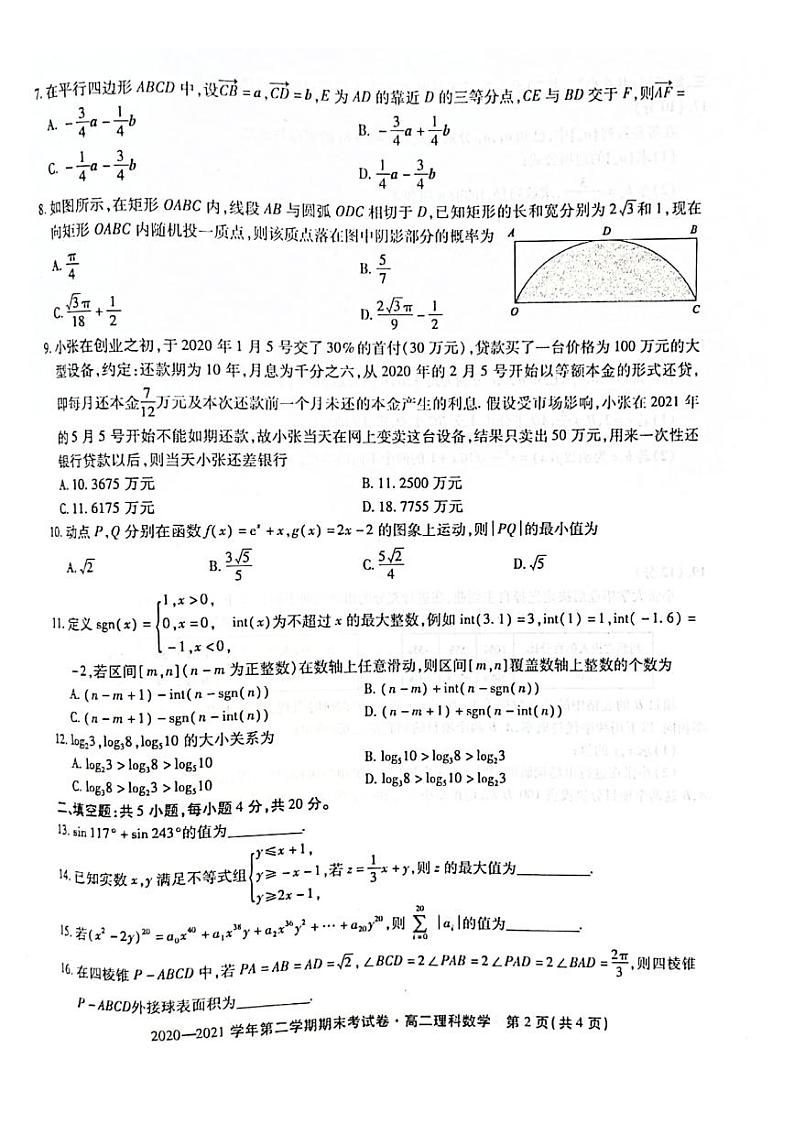 7.在平行四边形 ABCD 中,设$\overrightarrow{CB}$=a,$\overrightarrow{CD}$=b,E 为 AD 的靠近 D 的三等分点,CE 与 BD 交于 F,则$\overrightarrow{AF}$=
A. $-\frac{3}{4}a-\frac{1}{4}b$ B. $-\frac{3}{4}a+\frac{1}{4}b$
C. $-\frac{1}{4}a-\frac{3}{4}b$ D. $\frac{1}{4}a-\frac{3}{4}b$
8.如图所示,在矩形 OABC 内,线段 AB 与圆弧 ODC 相切于 D,已知矩形的长和宽分别为 $2\sqrt{3}$和 1,现在
向矩形 OABC 内随机投一质点,则该质点落在图中阴影部分的概率为
A D B
A. $\frac{π}{4}$ B. $\frac{5}{7}$
O C
C. $\frac{\sqrt{3}π}{18}+\frac{1}{2}$ D. $\frac{2\sqrt{3}π}{9}-\frac{1}{2}$
9.小张在创业之初,于 2020 年 1 月 5 号交了 30%的首付(30 万元),贷款买了一台价格为 100 万元的大
型设备,约定:还款期为 10 年,月息为千分之六,从 2020 年的 2 月 5 号开始以等额本金的形式还贷,
即每月还本金$\frac{7}{12}$万元及本次还款前一个月未还的本金产生的利息.假设受市场影响,小张在 2021 年
的 5 月 5 号开始不能如期还款,故小张当天在网上变卖这台设备,结果只卖出 50 万元,用来一次性还
银行贷款以后,则当天小张还差银行
A. 10.3675 万元 B. 11.2500 万元
C. 11.6175 万元 D. 18.7755 万元
10.动点 P,Q 分别在函数 f(x)=e^x+x,g(x)=2x-2 的图象上运动,则|PQ|的最小值为
A. $\sqrt{2}$ B. $\frac{3\sqrt{5}}{5}$ C. $\frac{5\sqrt{2}}{4}$ D. $\sqrt{5}$
11.定义 sgn(x)=$\begin{cases}1,x>0,\\0,x=0,\\-1,x<0,\end{cases}$ int(x)为不超过 x 的最大整数,例如 int(3.1)=3,int(1)=1,int(-1.6)=
-2,若区间[m,n](n-m 为正整数)在数轴上任意滑动,则区间[m,n]覆盖数轴上整数的个数为
A. (n-m+1)-int(n-sgn(n)) B. (n-m)+int(n-sgn(n))
C. (n-m+1)-sgn(n-int(n)) D. (n-m+1)+sgn(n-int(n))
12. $\log_2 3,\log_3 8,\log_5 10$ 的大小关系为
A. $\log_2 3>\log_3 8>\log_5 10$ B. $\log_5 10>\log_3 8>\log_2 3$
C. $\log_3 8>\log_2 3>\log_5 10$ D. $\log_3 8>\log_5 10>\log_2 3$
二、填空题:共 5 小题,每小题 4 分,共 20 分。
13. sin 117°+sin 243°的值为________.
14.已知实数 x,y 满足不等式组$\begin{cases}y≤x+1,\\y≥-x-1,\\y≥2x-1,\end{cases}$若 z=$\frac{1}{3}x+y$,则 z 的最大值为________.
15.若$(x^2-2y)^{20}=a_0x^{40}+a_1x^{38}y+a_2x^{36}y^2+⋯+a_{20}y^{20}$,则 $\sum_{i=0}^{20}|a_i|$的值为________.
16.在四棱锥 P-ABCD 中,若 PA=AB=AD=$\sqrt{2}$,∠BCD=2∠PAB=2∠PAD=2∠BAD=$\frac{2π}{3}$,则四棱锥
P-ABCD外接球表面积为________.
2020—2021 学年第二学期期末考试卷·高二理科数学 第 2 页(共 4 页)